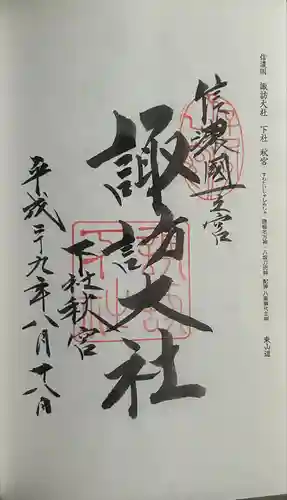 信濃国 諏訪大社 下社 秋宮
東山道
信濃國一之宮
諏訪大社
下社秋宮
平成二十九年八月十八日